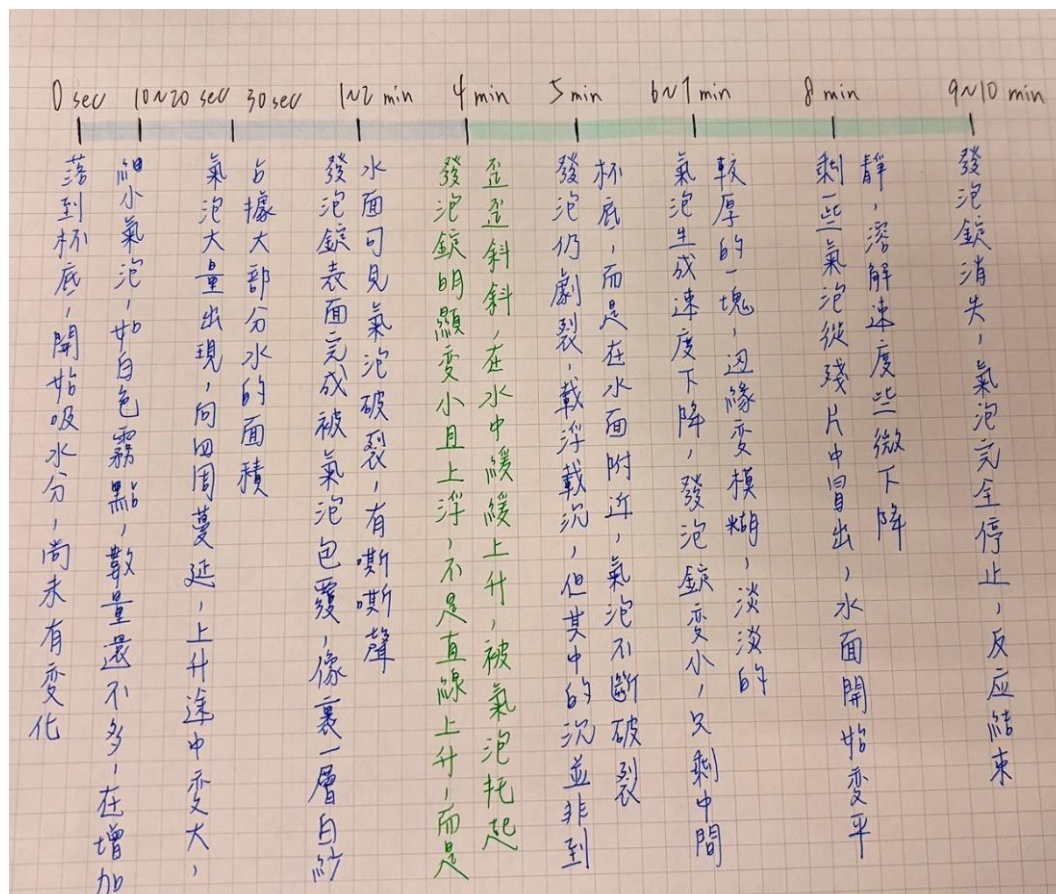 0 sec 10~20 sec 30 sec 1~2 min 4 min 5 min 6~7 min 8 min 9~10 min
落到杯底，開始吸水分，尚未有变化
細小氣泡，如白色霧點，數量還不多，在增加
氣泡大量出現，向四周蔓延，上升途中变大，
占據大部分水的面積
發泡錠表面完成被氣泡包覆，像裹一層白紗
水面可見氣泡破裂，有嘶嘶聲
發泡錠明顯变小且上浮，不是直線上升，而是
歪歪斜斜，在水中緩緩上升，被氣泡托起
發泡仍劇裂，載浮載沉，但其中的沉並非到
杯底，而是在水面附近，氣泡不斷破裂
氣泡生成速度下降，發泡錠变小，只剩中間
較厚的一塊，边緣变模糊，淡淡的
剩一些氣泡從殘片中冒出，水面開始变平
靜，溶解速度些微下降
發泡錠消失，氣泡完全停止，反应結束